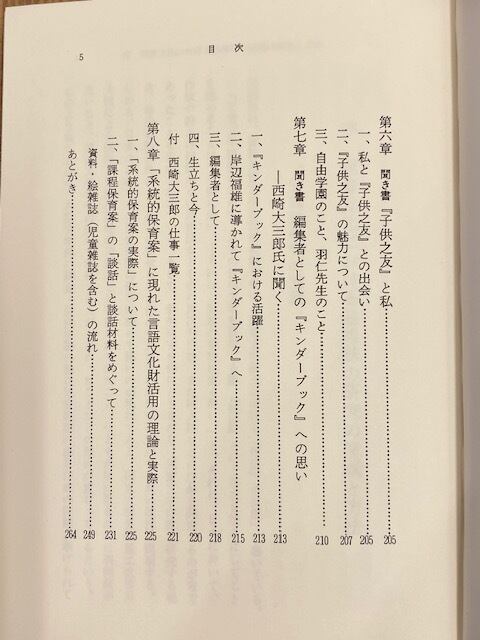 目次
5
第六章 聞き書『子供之友』と私……205
一、私と『子供之友』との出会い……205
二、『子供之友』の魅力について……207
三、自由学園のこと、羽仁先生のこと……210
第七章 聞き書 編集者としての『キンダーブック』への思い
―西崎大三郎氏に聞く……213
一、『キンダーブック』における活躍……213
二、岸辺福雄に導かれて『キンダーブック』へ……215
三、編集者として……218
四、生立ちと今……220
付 西崎大三郎の仕事一覧……221
第八章 「系統的保育案」に現れた言語文化財活用の理論と実際……225
一、「系統的保育案の実際」について……225
二、「課程保育案」の「談話」と談話材料をめぐって……231
資料・絵雑誌（児童雑誌を含む）の流れ……249
あとがき……264